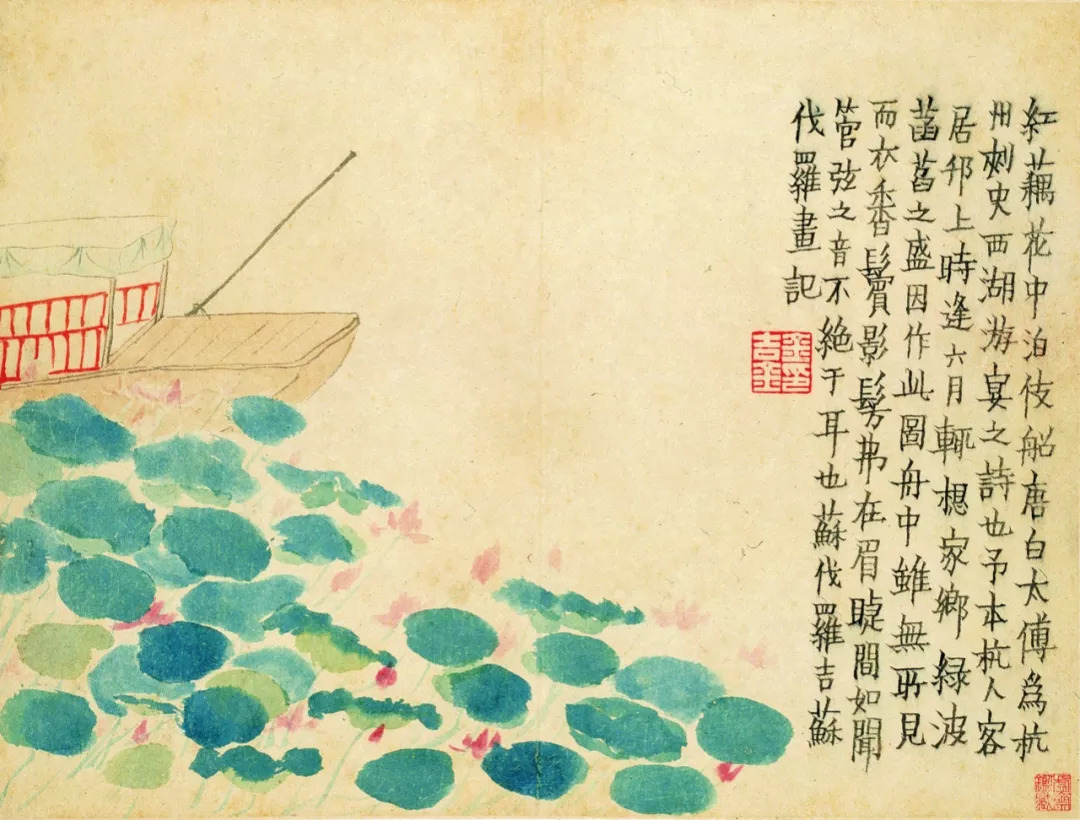 紅藕花中泊伎船唐白太傅為杭
州刺史西湖游宴之詩也予本杭人客
居邗上時逢六月輒想家鄉緑波
菡萏之盛因作此圖舟中雖無所見
而衣香鬢影髣弗在眉睫間如聞
管弦之音不絶于耳也蘇伐羅吉蘇
伐羅畫記
金吉金印